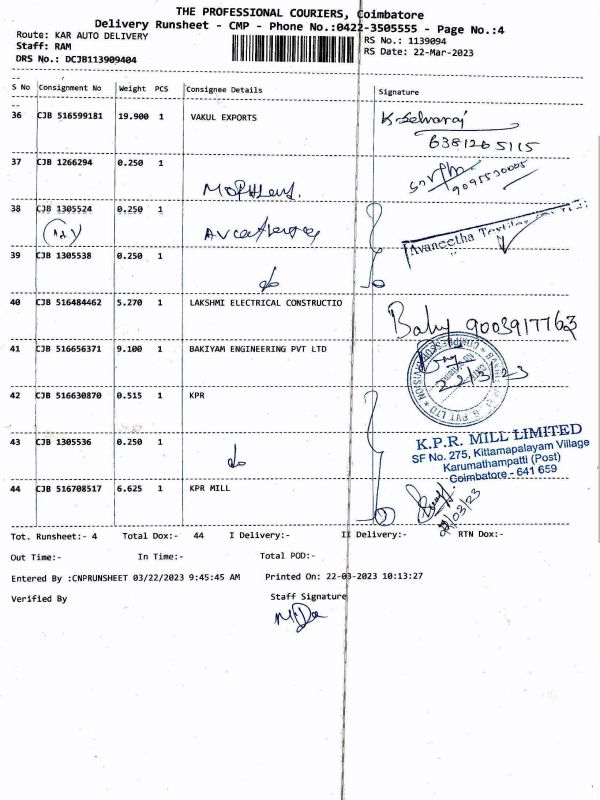 THE PROFESSIONAL COURIERS, Coimbatore
Delivery Runsheet - CMP - Phone No.:0422-3505555 - Page No.:4
Route: KAR AUTO DELIVERY RS No.: 1139094
Staff: RAM RS Date: 22-Mar-2023
DRS No.: DCJB113909404
S No Consignment No Weight PCS Consignee Details Signature
36 CJB 516599181 19.900 1 VAKUL EXPORTS K. Selvaraj
6381265115
37 CJB 1266294 0.250 1
9095520005
38 CJB 1305524 0.250 1
Avaneetha Textiles
39 CJB 1305538 0.250 1 do
40 CJB 516484462 5.270 1 LAKSHMI ELECTRICAL CONSTRUCTIO
Baby 9003917763
41 CJB 516656371 9.100 1 BAKIYAM ENGINEERING PVT LTD
22/3/23
42 CJB 516630870 0.515 1 KPR
43 CJB 1305536 0.250 1 do
K.P.R. MILL LIMITED
SF No. 275, Kittamapalayam Village
Karumathampatti (Post)
Coimbatore - 641 659
44 CJB 516708517 6.625 1 KPR MILL
22/03/23
Tot. Runsheet:- 4 Total Dox:- 44 I Delivery:- II Delivery:- RTN Dox:-
Out Time:- In Time:- Total POD:-
Entered By :CNPRUNSHEET 03/22/2023 9:45:45 AM Printed On: 22-03-2023 10:13:27
Verified By Staff Signature